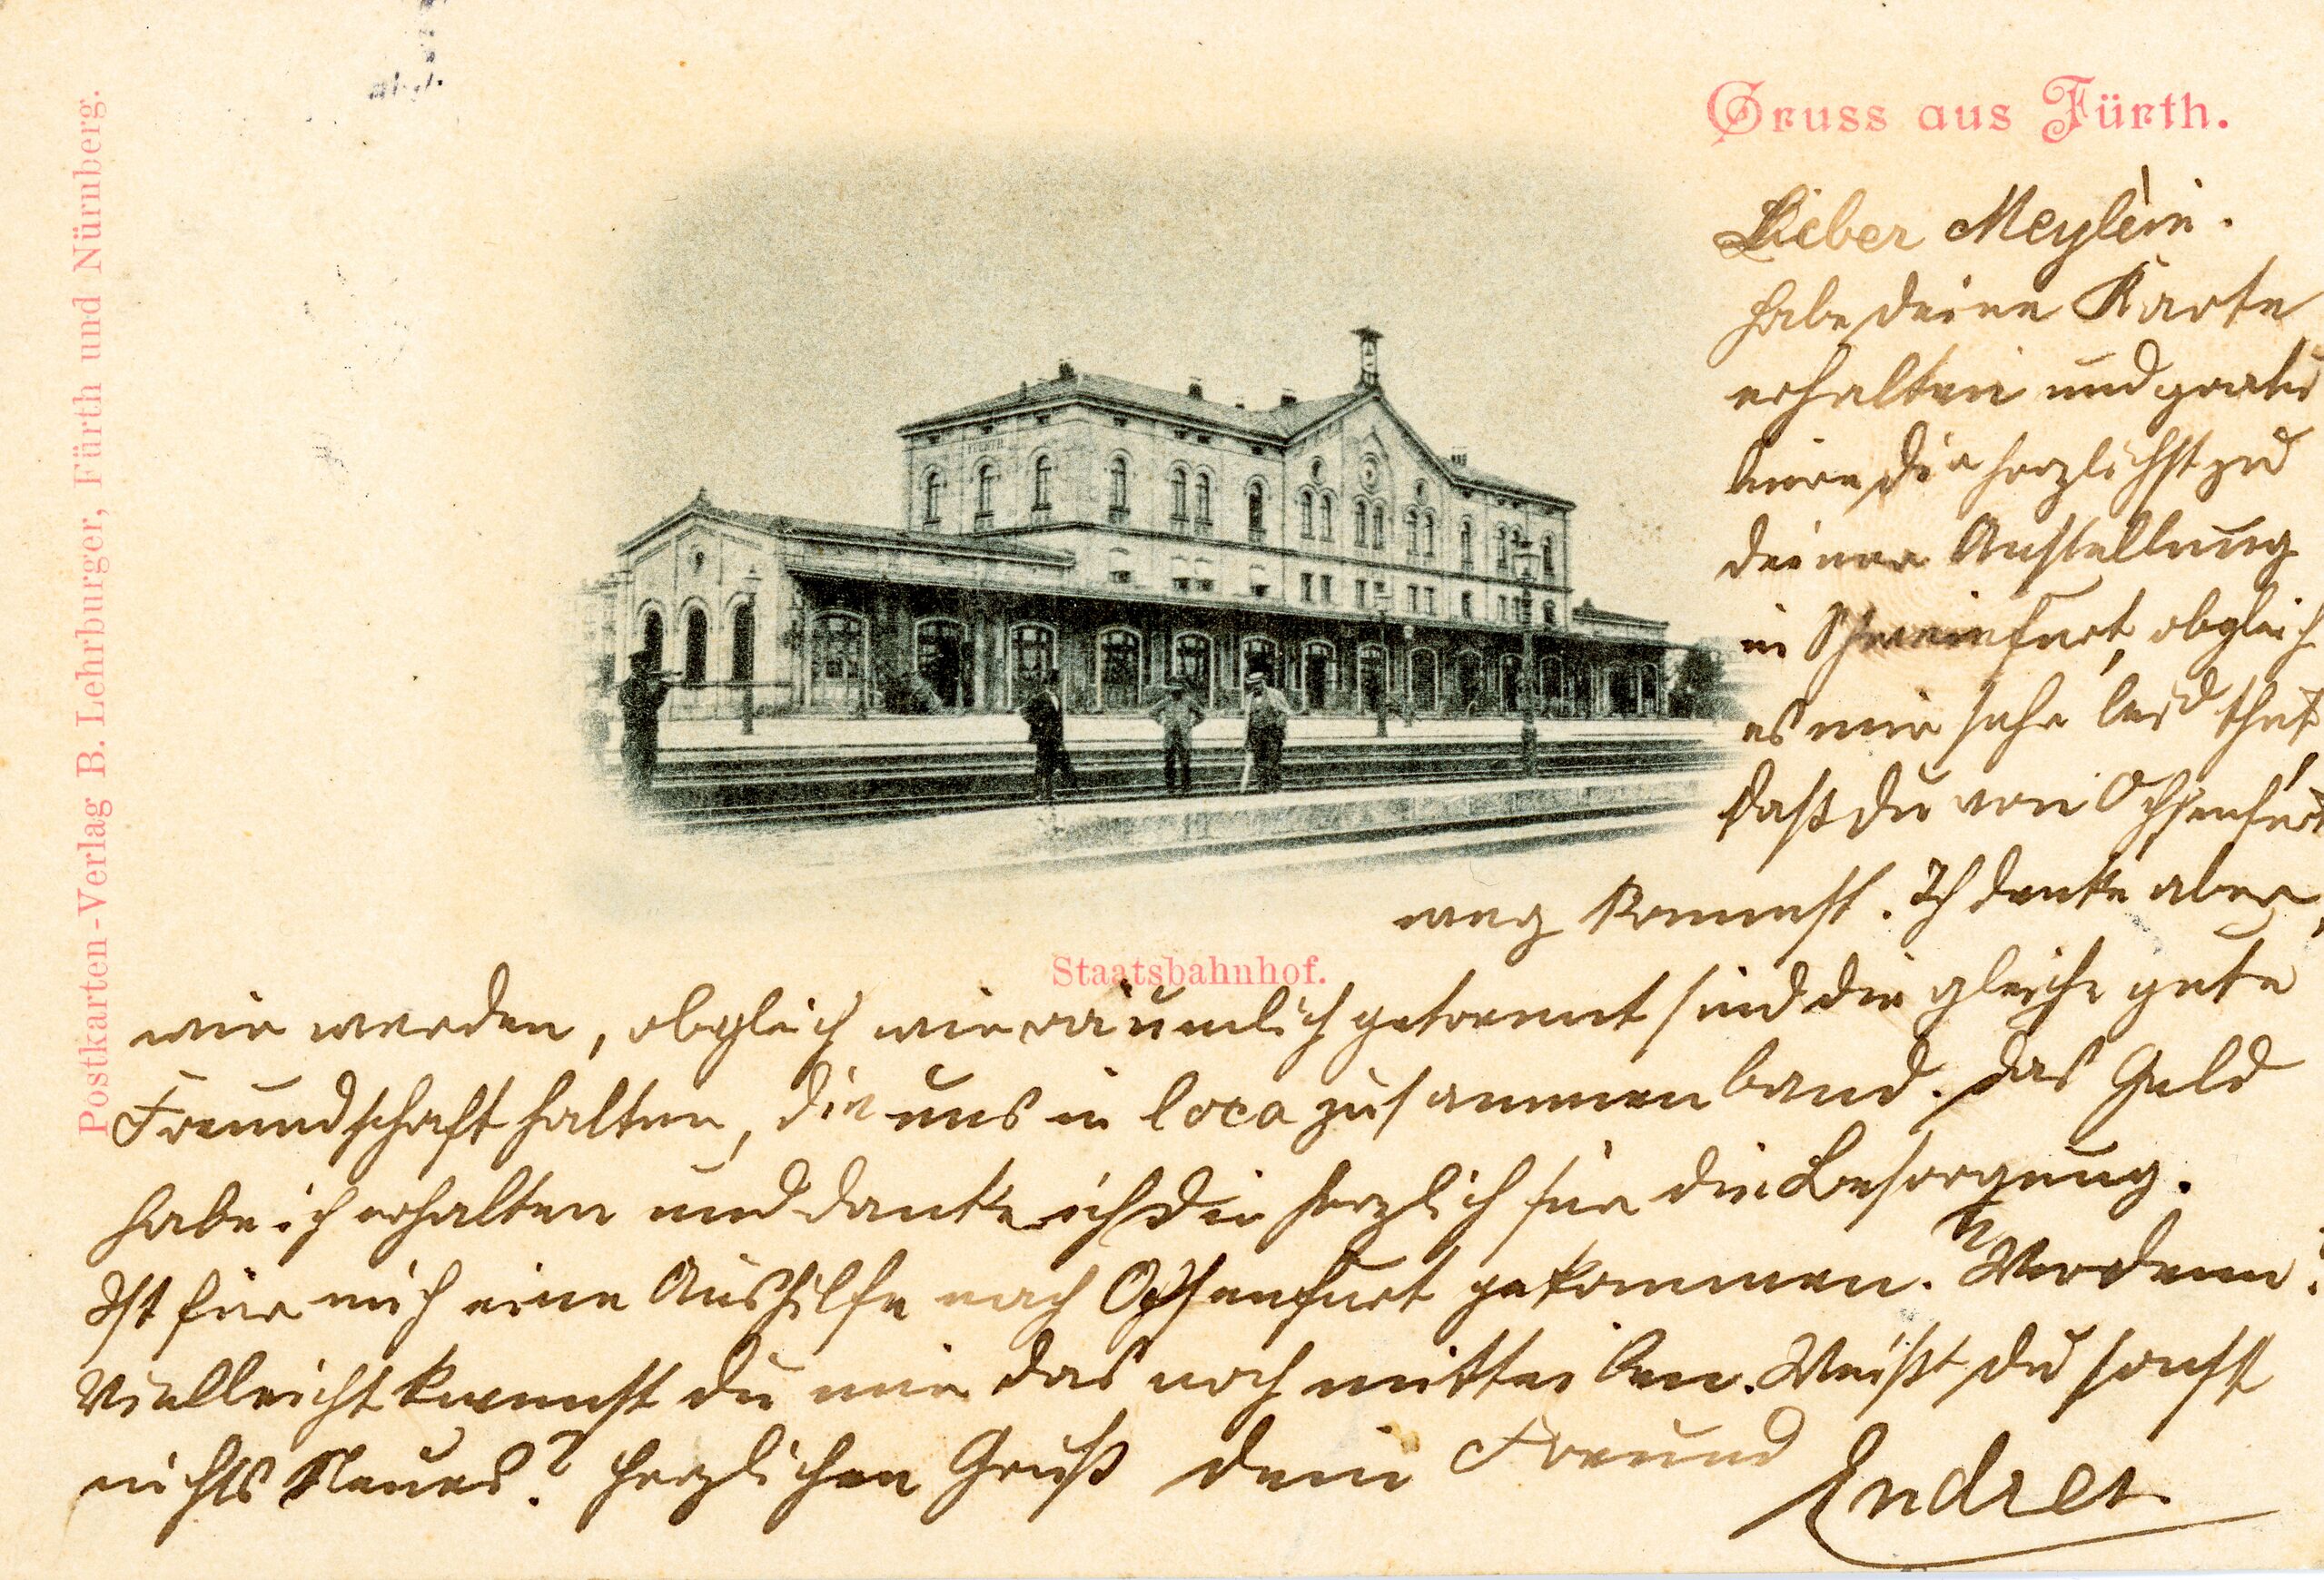 Gruss aus Fürth.
Lieber Meylein.
habe deine Karte
erhalten und gratu
liere dir herzlichst zu
deiner Anstellung
in Schweinfurt, obgleich
es mir sehr leid thut
daß du von Ochsenfurt
weg kommst. Ich denke aber,
Staatsbahnhof.
wir werden, obgleich wir räumlich getrennt sind die gleiche gute
Freundschaft halten, die uns in loco zusammen band. Das Geld
habe ich erhalten und danke ich dir herzlich für die Besorgung.
Ist für mich eine Aushilfe nach Ochsenfurt gekommen. Wer denn?
Vielleicht kannst du mir das noch mitteilen. Weißt du sonst
nichts Neues? Herzlichen Gruß dein Freund
Endres
Postkarten-Verlag B. Lehrburger, Fürth und Nürnberg.
FUERTH